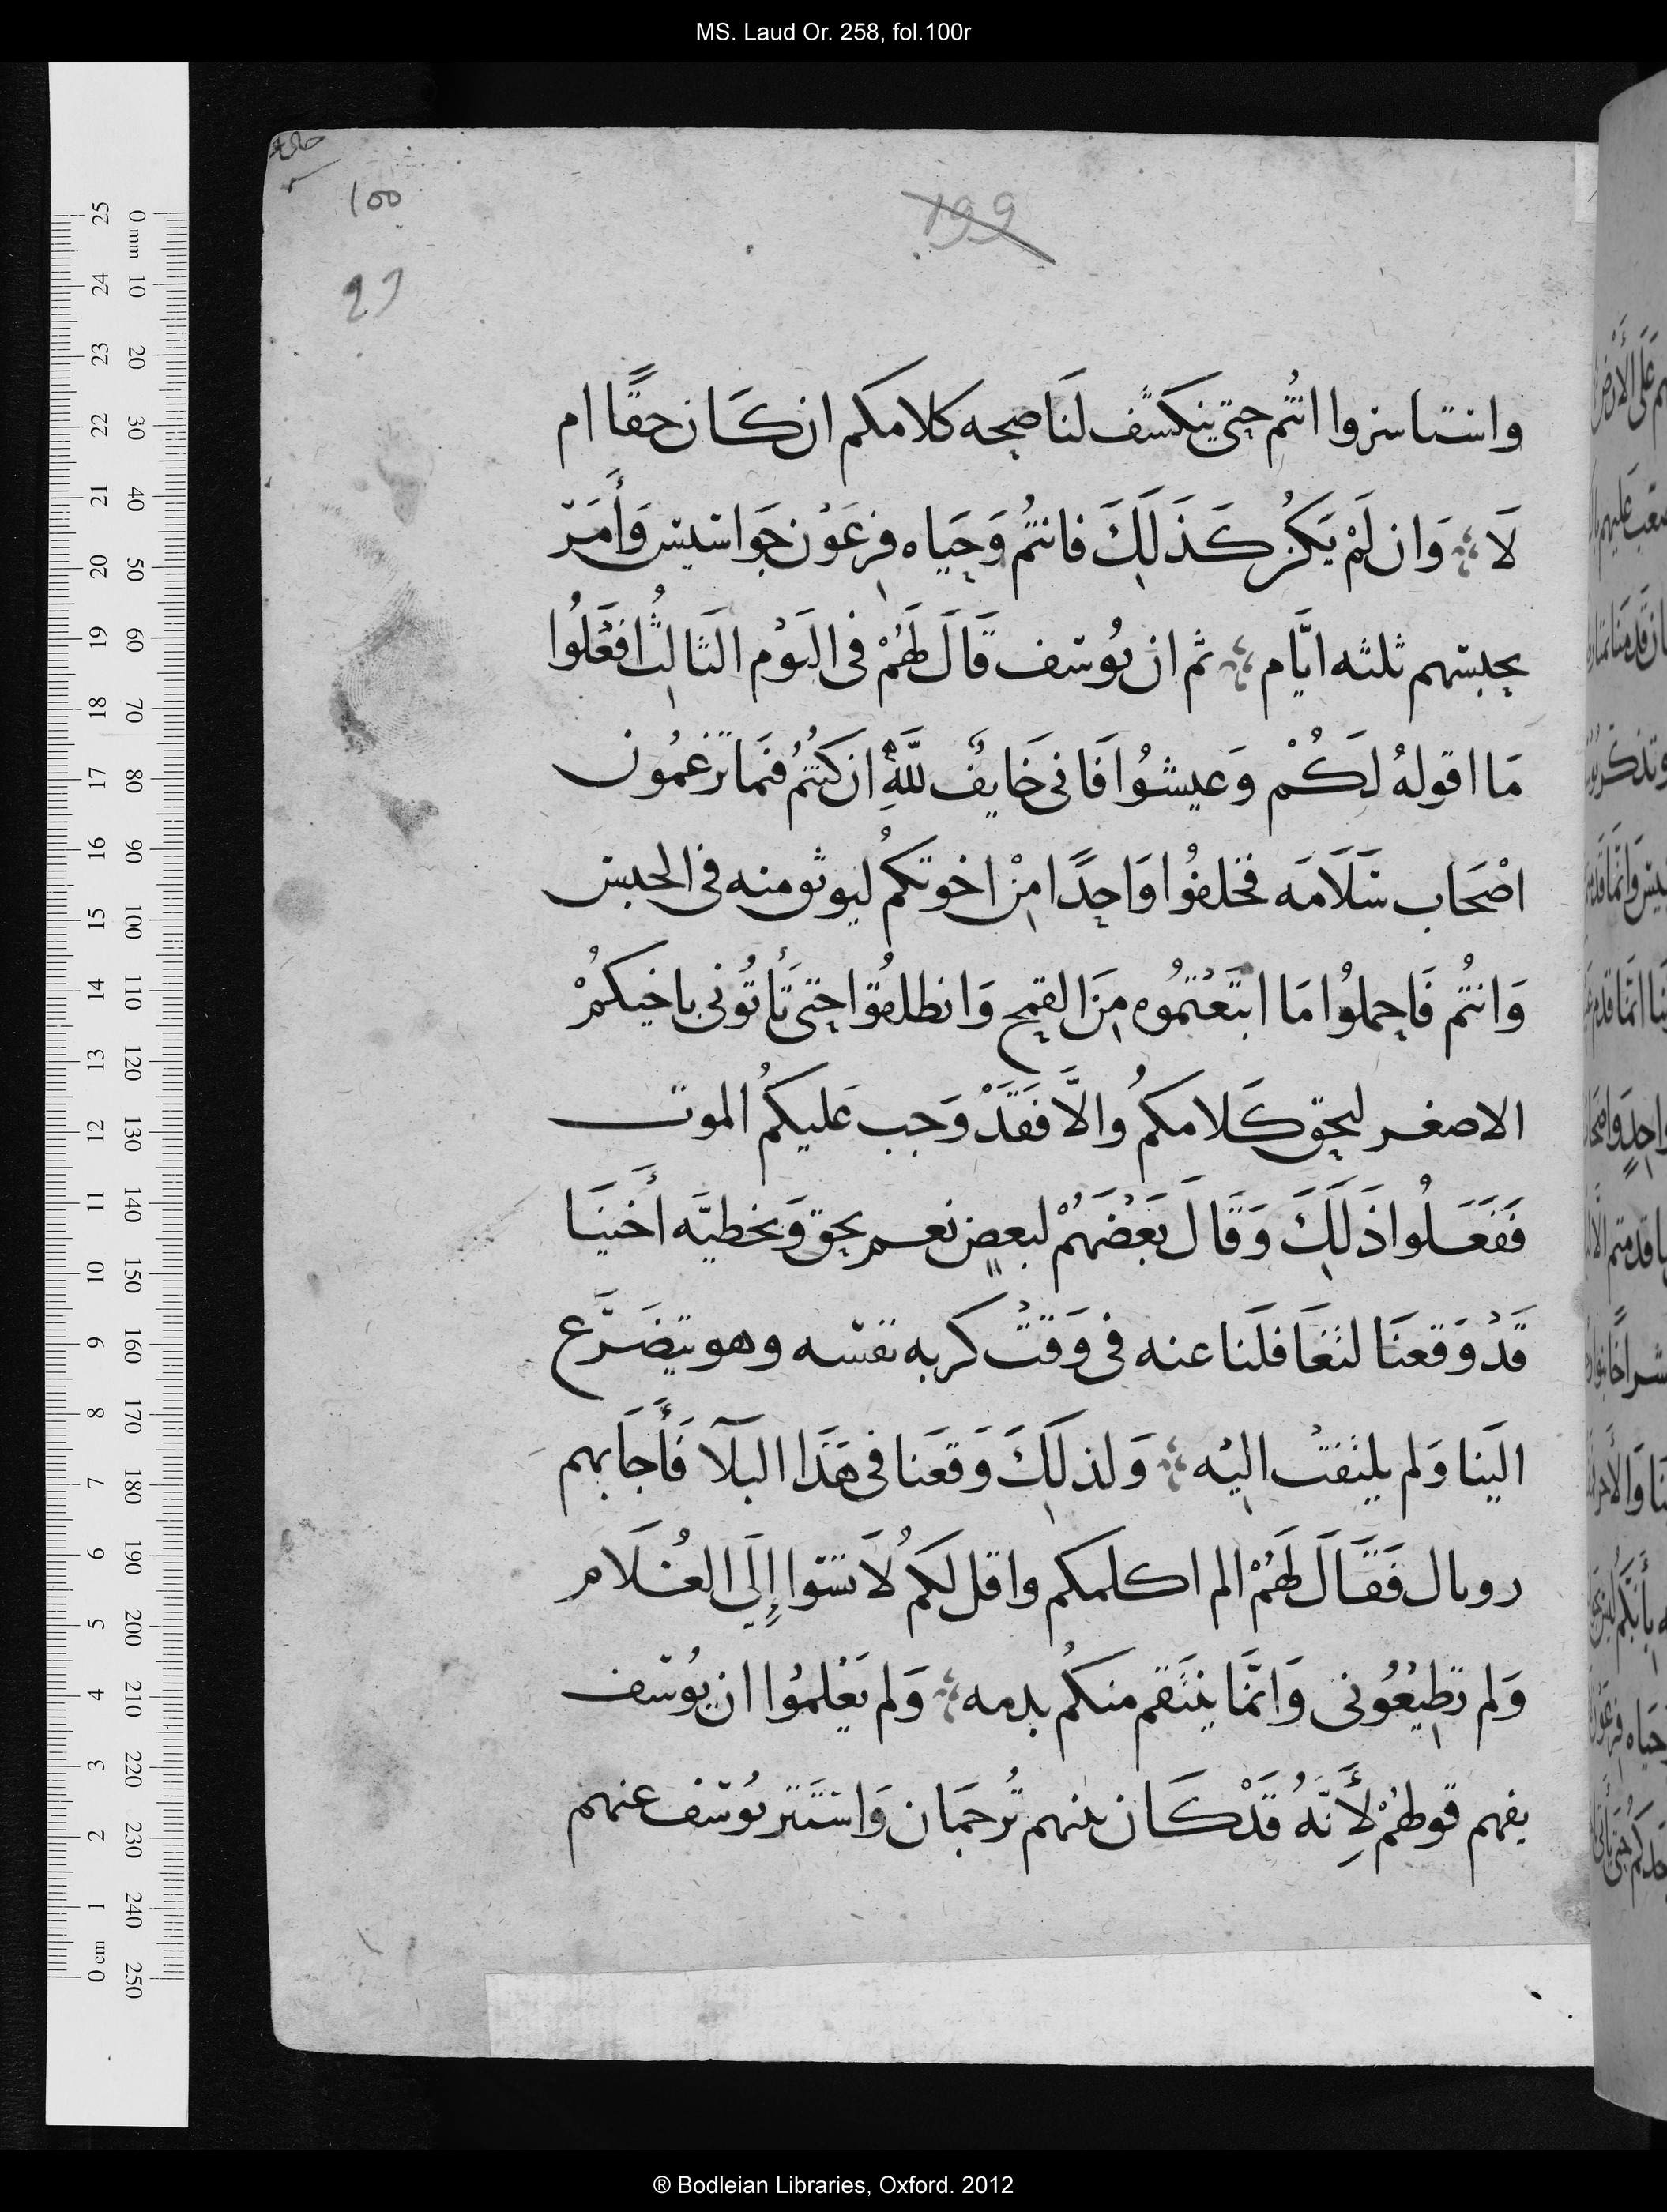 MS. Laud Or. 258, fol.100r
100
199
واستاسروا انتُم حتى ينكشف لنَا صحه كلامكم ان كَان حقًا ام
لَا وَان لَمْ يَكُن كَذَلِكَ فانتُم وَحَيَاه فِرعَوْن جَواسيس وَأَمَرَ
بحبسهم ثلثه ايَّام ثم ان يُوسف قَالَ لَهُمْ فى اليَوْم الثَالِث افعَلُوا
مَا اقولهُ لَكُمْ وَعيشوُا فَانى خَايِفٌ للَّهِ ان كنتُمُ فيمَا تزعمُون
اصْحَاب سَلَامَه فخلفوُا وَاحِدًا مِنْ اخوتكمُ ليوثق منه فى الحبس
وَانتُم فَاحملوُا مَا ابتَعْتمُوه مِنَ القمح وَانطلقوُا حتىَ تَأتُونى باخيكمُْ
الاصغر ليحق كَلامكمُ والَّا فَقَدْ وَجب عَليكمُ الموت
فَفَعَلُوا ذَلِكَ وَقَالَ بَعْضَهُمْ لبعضٍ نعم بحق وَبخطيَّه أَخينَا
قَدْ وَقعنَا لتغَافلَنا عنه فى وَقتْ كربه نفسه وهو يتضَرَّع
الَينا وَلم يلتفتْ اليْه وَلذلِكَ وَقعَنا فى هَذَا البَلآ فَأَجَابهم
روبال فَقَالَ لَهُمْ الم اكلمكم واقل لكمُ لَا تسوا إِلَى الغُلَام
وَلم تطِيْعُونى وَانَّمَا ينتَقم منكمُ بدمه وَلم يَعْلموُا ان يوُسف
يفهم قولهُمْ لِأَنَّهُ قَدْ كَان بينهم تُرجمَان وَاستَتر يوُسف عنهم
® Bodleian Libraries, Oxford. 2012